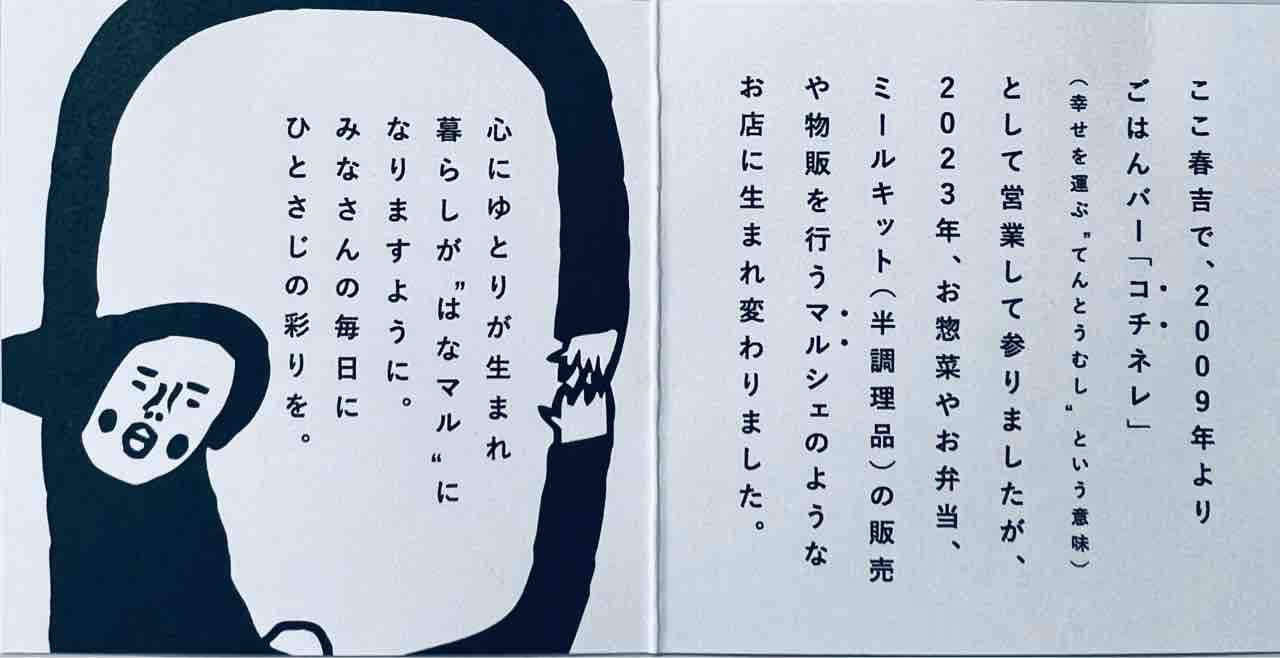 ここ春吉で、2009年より
ごはんバー「コチネレ」
（幸せを運ぶ〝てんとうむし〟という意味）
として営業して参りましたが、
2023年、お惣菜やお弁当、
ミールキット（半調理品）の販売
や物販を行うマルシェのような
お店に生まれ変わりました。
心にゆとりが生まれ
暮らしが〝はなマル〟に
なりますように。
みなさんの毎日に
ひとさじの彩りを。